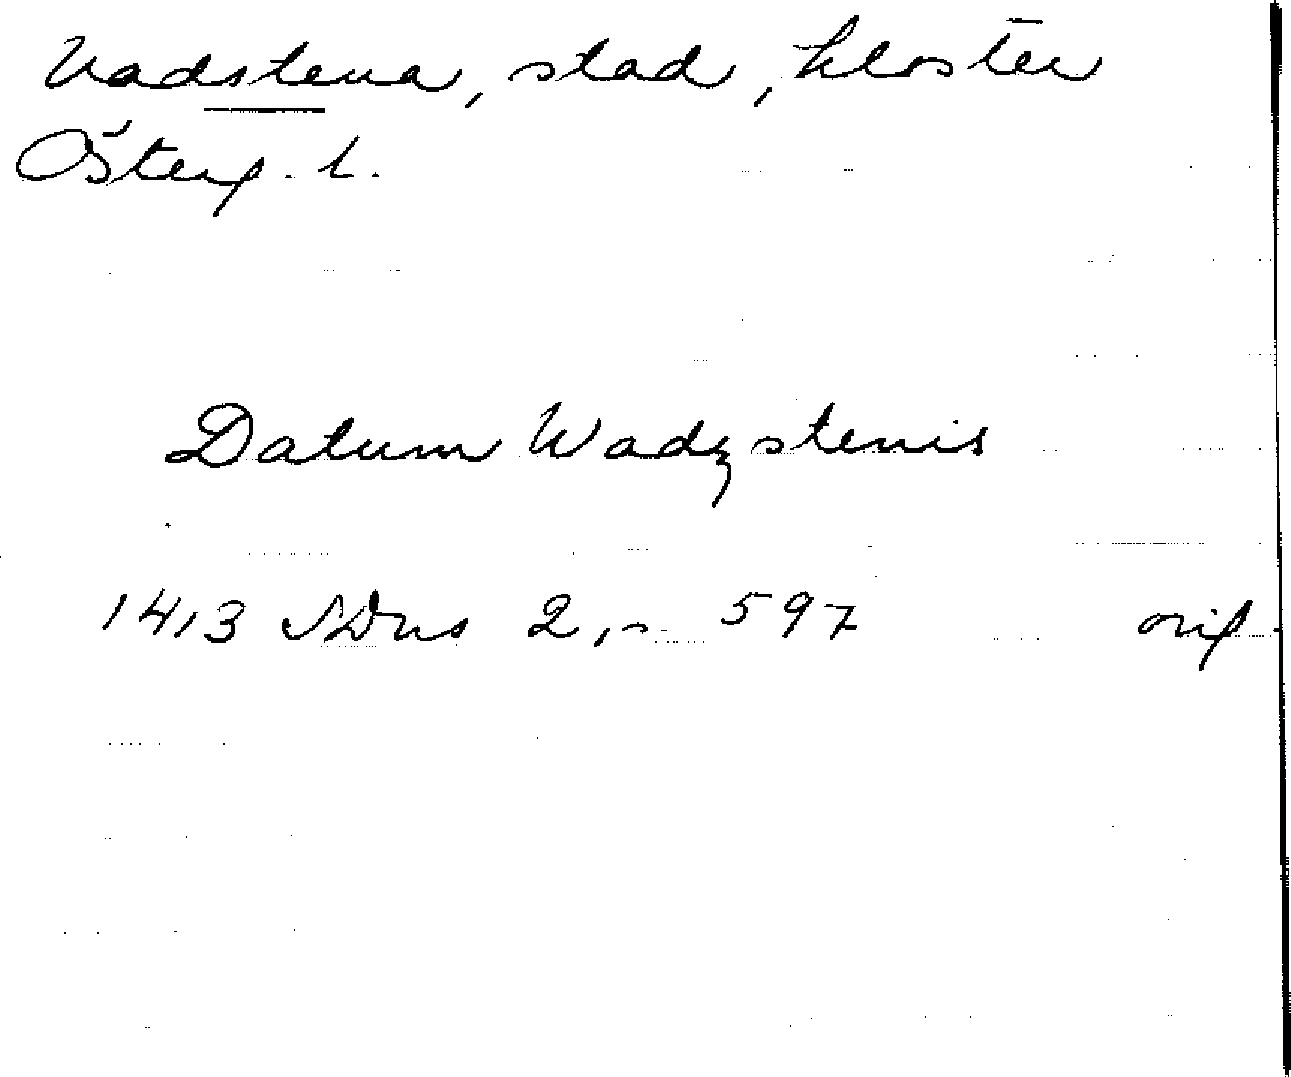 Vadstena, stad, kloster
Österg. l.
Datum Wadzstenis
1413 SDns 2, 597 orig.